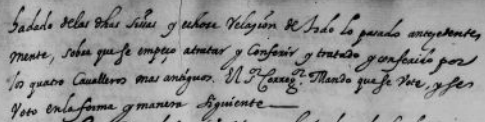 hadado delas dhas Sisas y echose relaçion de todo lo pasado antezedente
mente, sobre que se empeço atratar y Conferir y tratado y conferido por
los quatro Cavalleros mas antiguos. El Sr Correxr. Mando que se Vote, y se
Voto en la forma y manera siguiente